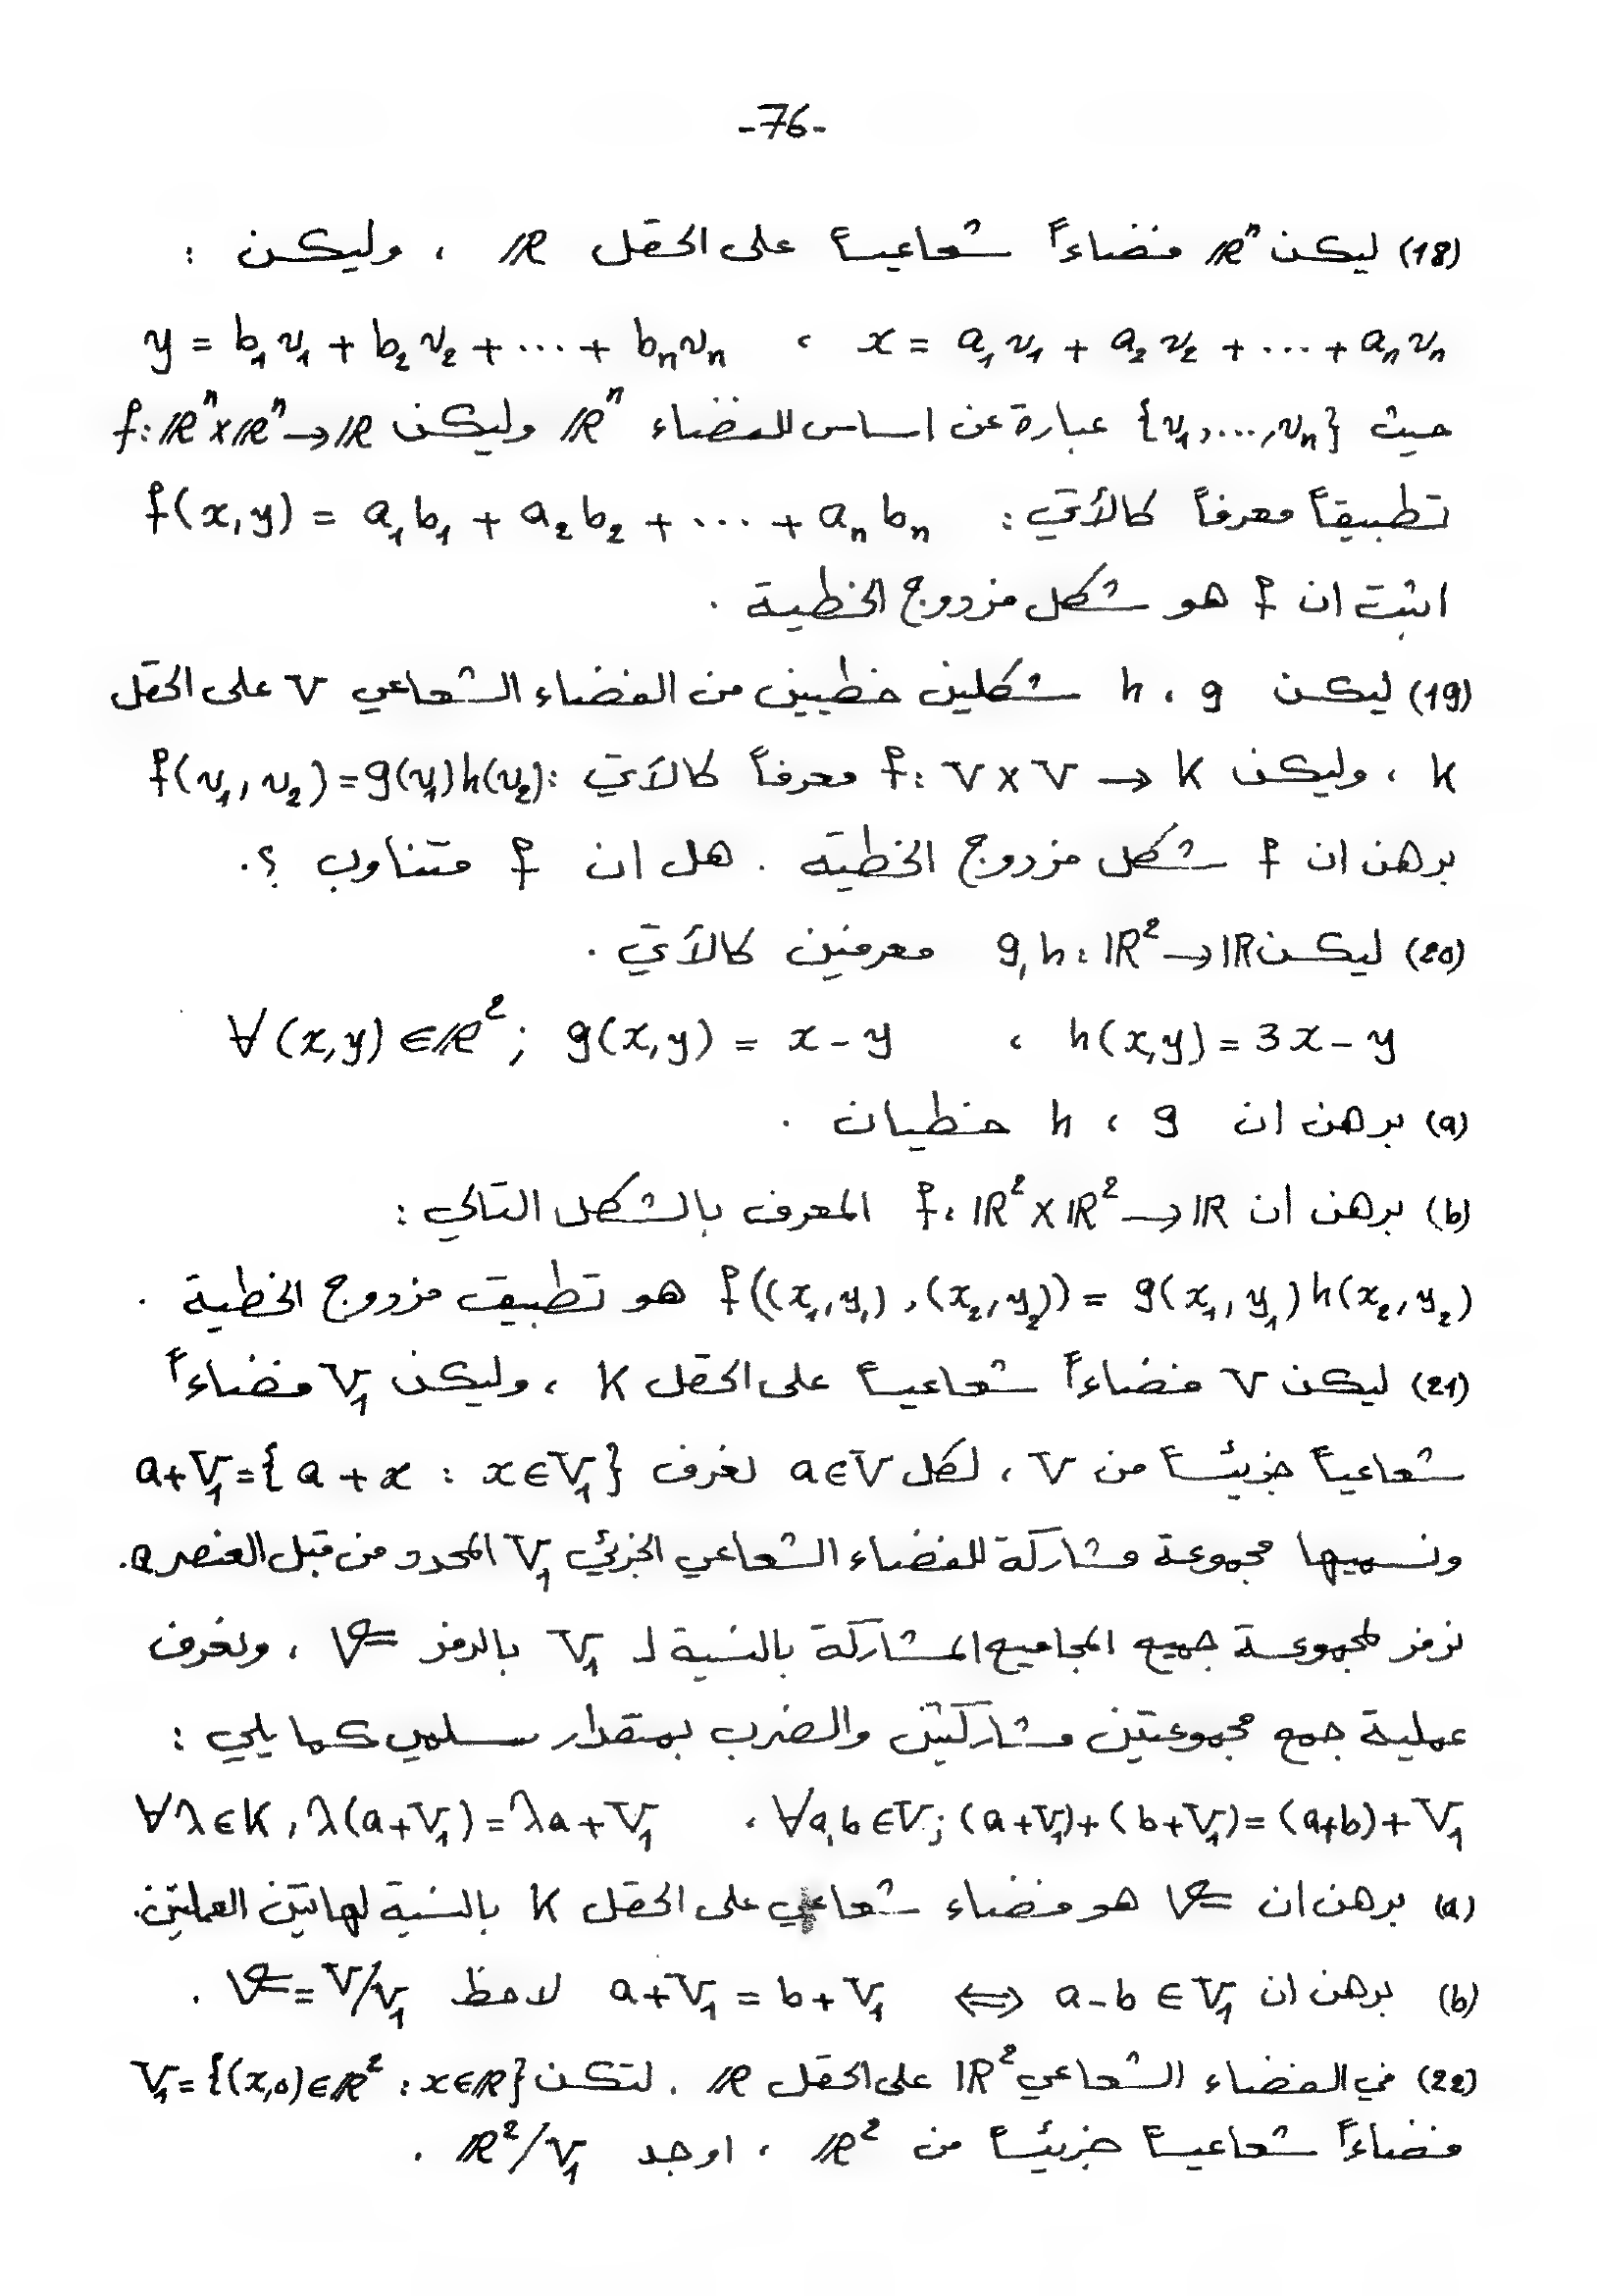 -76-
(18) ليكن ℝⁿ فضاءاً شعاعياً على الحقل ℝ ، وليكن :
x = a₁v₁ + a₂v₂ + ... + aₙvₙ ، y = b₁v₁ + b₂v₂ + ... + bₙvₙ
حيث {v₁,...,vₙ} عبارة عن اساس للفضاء ℝⁿ وليكن f: ℝⁿ×ℝⁿ→ℝ
تطبيقاً معرفاً كالأتي : f(x,y) = a₁b₁ + a₂b₂ + ... + aₙbₙ
اثبت ان f هو شكل مزدوج الخطية .
(19) ليكن g ، h شكلين خطيين من الفضاء الشعاعي V على الحقل
K ، وليكن f: V×V → K معرفاً كالآتي : f(v₁,v₂)=g(v₁)h(v₂)
برهن ان f شكل مزدوج الخطية . هل ان f متناوب ؟.
(20) ليكن g,h: ℝ²→ℝ معرفين كالآتي .
∀(x,y)∈ℝ²; g(x,y) = x-y ، h(x,y)=3x-y
(a) برهن ان g ، h خطيان .
(b) برهن ان f: ℝ²×ℝ²→ℝ المعرف بالشكل التالي :
f((x₁,y₁),(x₂,y₂)) = g(x₁,y₁)h(x₂,y₂) هو تطبيق مزدوج الخطية .
(21) ليكن V فضاءاً شعاعياً على الحقل K ، وليكن V₁ فضاءاً
شعاعياً جزيئاً من V ، لكل a∈V نعرف a+V₁={a+x : x∈V₁}
ونسميها مجموعة مشاركة للفضاء الشعاعي الجزئي V₁ المحدد من قبل العنصر a.
نرمز لمجموعة جميع المجاميع المشاركة بالنسبة لـ V₁ بالرمز 𝒱 ، ونعرف
عملية جمع مجموعتين مشاركتين والضرب بمقدار سلمي كما يلي :
∀a,b∈V; (a+V₁)+(b+V₁)=(a+b)+V₁ ، ∀λ∈K, λ(a+V₁)=λa+V₁
(a) برهن ان 𝒱 هو فضاء شعاعي على الحقل K بالنسبة لهاتين العمليتين.
(b) برهن ان a+V₁ = b+V₁ ⇔ a-b∈V₁ لاحظ 𝒱=V/V₁ .
(22) في الفضاء الشعاعي ℝ² على الحقل ℝ . لتكن V₁={(x,0)∈ℝ² : x∈ℝ}
فضاءاً شعاعياً جزيئاً من ℝ² ، اوجد ℝ²/V₁ .